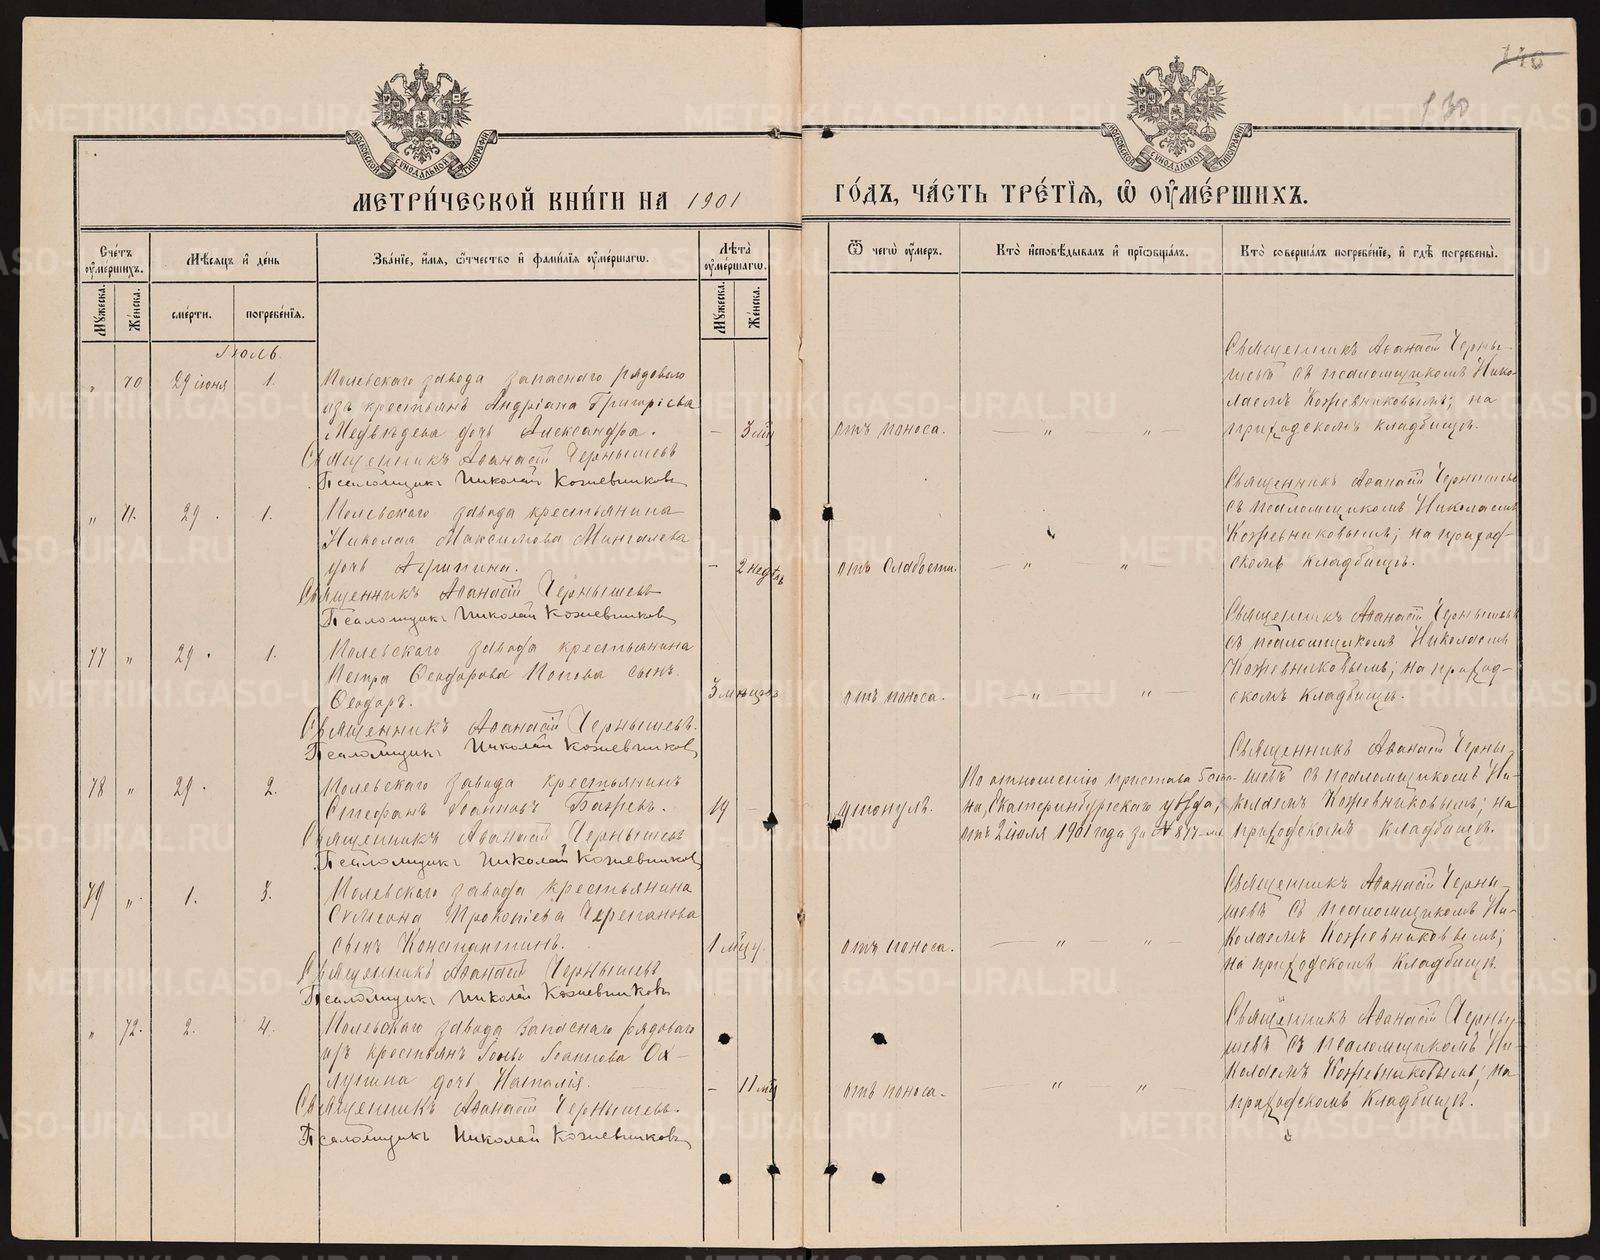 130
МОСКОВСКОЙ СѴНОДАЛЬНОЙ ТИПОГРАФІИ
МОСКОВСКОЙ СѴНОДАЛЬНОЙ ТИПОГРАФІИ
МЕТРИ́ЧЕСКОЙ КНИ́ГИ НА 1901 ГО́ДЪ, ЧА́СТЬ ТРЕ́ТЇЯ, Ѡ҆ ОУ҆МЕ́РШИХЪ.
Сче́тъ оу҆ме́ршихъ.
Мѣ́сяцъ и҆ де́нь
Зва́нїе, и҆́мя, ѻ҆́тчество и҆ фами́лїя оу҆ме́ршагѡ.
Лѣта̀ оу҆ме́ршагѡ.
Ѿ чегѡ̀ оу҆́меръ.
Кто̀ и҆сповѣ́дывалъ и҆ прїѡбща́лъ.
Кто̀ соверша́лъ погребе́нїе, и҆ гдѣ̀ погребены̀.
Му́жеска.
Же́нска.
сме́рти.
погребе́нїя.
Му́жеска.
Же́нска.
Іюль.
„ 70 29 іюня 1.
Полевскаго завода запаснаго рядоваго
изъ крестьянъ Андріана Григоріева
Медвѣдева дочь Александра.
Священникъ Аѳанасій Чернышевъ
Псаломщикъ Николай Кожевниковъ
– 3 мѣс
отъ поноса.
— „ „ —
Священникъ Аѳанасій Черны-
шевъ съ псаломщикомъ Нико-
лаемъ Кожевниковымъ; на
приходскомъ кладбищѣ.
„ 71. 29 . 1.
Полевскаго завода крестьянина
Николая Максимова Мингалева
дочь Агрипина.
Священникъ Аѳанасій Чернышевъ
Псаломщикъ Николай Кожевниковъ
– 2 недѣль
отъ слабости.
— „ — „ —
Священникъ Аѳанасій Чернышевъ
съ псаломщикомъ Николаемъ
Кожевниковымъ; на приход-
скомъ кладбищѣ.
77 „ 29 . 1.
Полевскаго завода крестьянина
Петра Ѳеодорова Попова сынъ
Ѳеодоръ.
Священникъ Аѳанасій Чернышевъ.
Псаломщикъ Николай Кожевниковъ
3 мѣсяцевъ
отъ поноса.
— „ — „ —
Священникъ Аѳанасій Чернышевъ
съ псаломщикомъ Николаемъ
Кожевниковымъ; на приход-
скомъ кладбищѣ.
78 „ 29 . 2.
Полевскаго завода крестьянинъ
Стефанъ Іоанновъ Бажевъ.
Священникъ Аѳанасій Чернышевъ
Псаломщикъ Николай Кожевниковъ
19 –
утонулъ.
По отношенію пристава 5 ста-
на, Екатеринбургскаго уѣзда,
отъ 2 іюля 1901 года за № 817-мъ
Священникъ Аѳанасій Черны-
шевъ съ псаломщикомъ Ни-
колаемъ Кожевниковымъ; на
приходскомъ кладбищѣ.
79 „ 1. 3.
Полевскаго завода крестьянина
Симеона Прокопіева Черепанова
сынъ Константинъ.
Священникъ Аѳанасій Чернышевъ
Псаломщикъ Николай Кожевниковъ
отъ поноса.
— „ — „ —
Священникъ Аѳанасій Черны-
шевъ съ псаломщикомъ Ни-
колаемъ Кожевниковымъ;
на приходскомъ кладбищѣ.
„ 72. 2. 4.
Полевскаго завода запаснаго рядоваго
изъ крестьянъ Іоаннова Ох-
лупина дочь Наталія.
Священникъ Аѳанасій Чернышевъ.
Псаломщикъ Николай Кожевниковъ
– 11 мѣс
отъ поноса.
„ „ —
Священникъ Аѳанасій Черны-
шевъ съ псаломщикомъ Ни-
колаемъ Кожевниковымъ; на
приходскомъ кладбищѣ.
METRIKI.GASO-URAL.RU